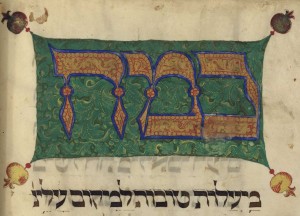 כמה
מעלות טובות למקום עלינו